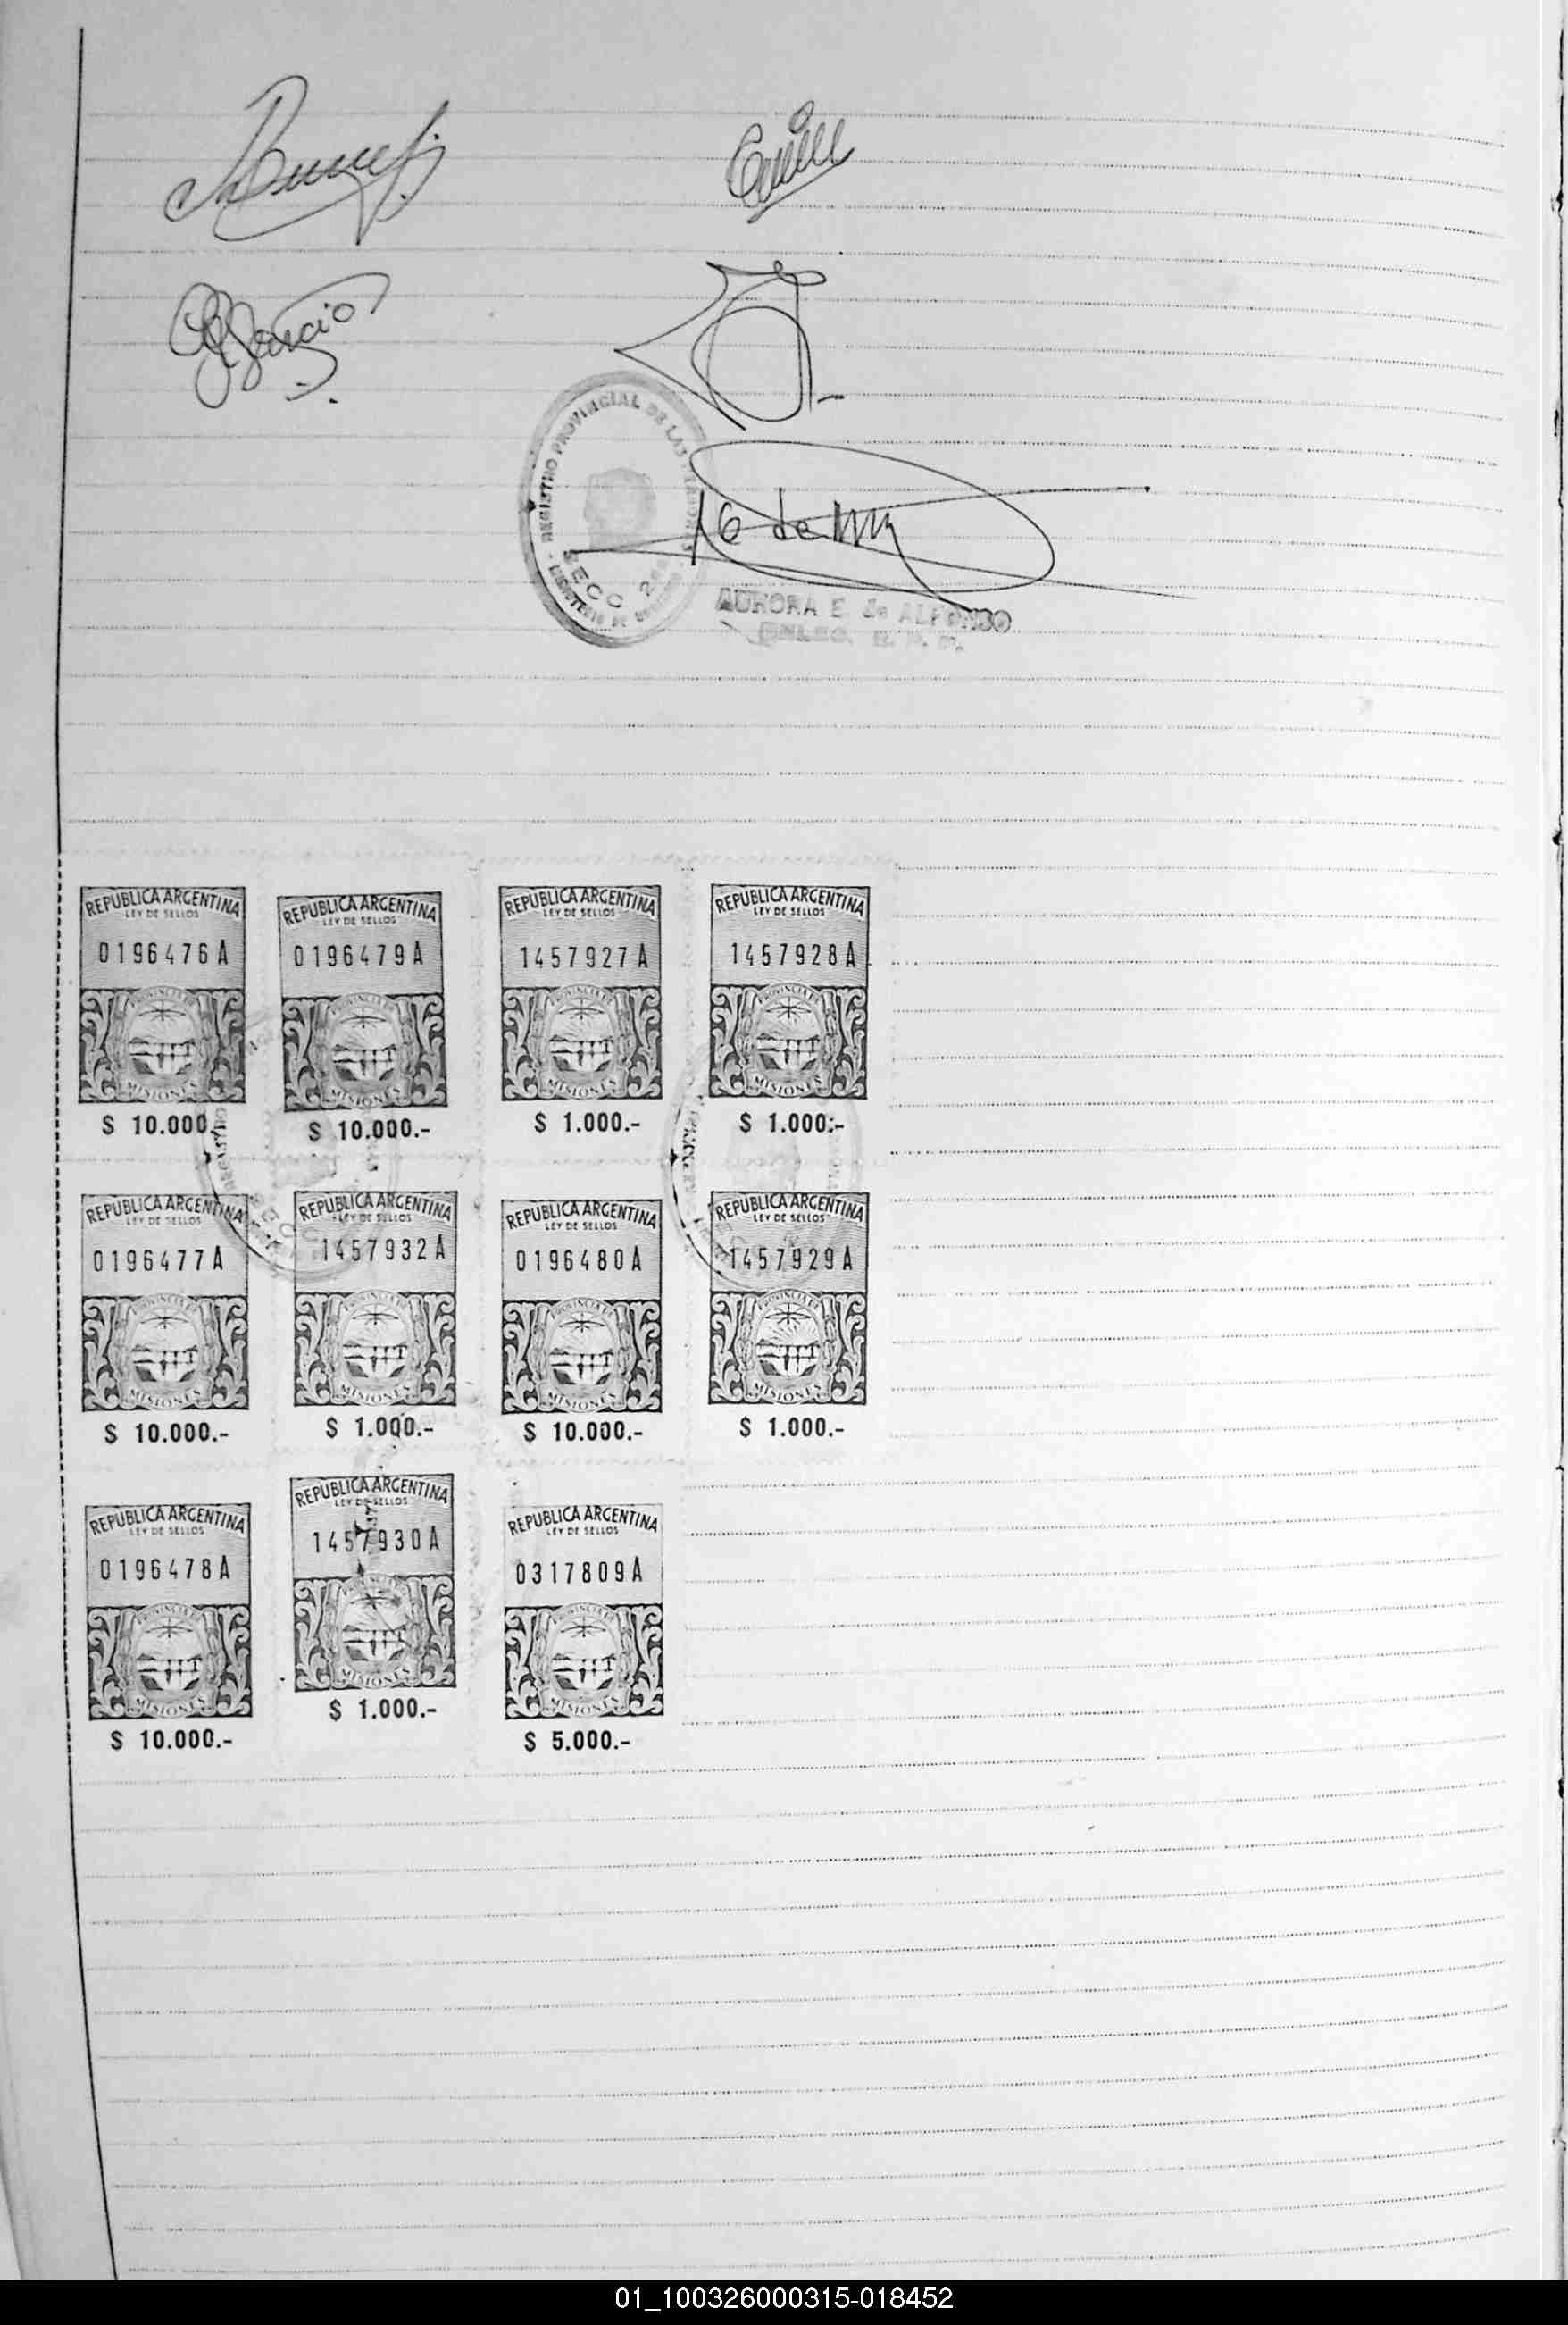 REGISTRO PROVINCIAL DE LAS
SECC 2
MINISTERIO DE
AURORA E. de ALFONSO
REPUBLICA ARGENTINA REPUBLICA ARGENTINA REPUBLICA ARGENTINA REPUBLICA ARGENTINA
LEY DE SELLOS LEY DE SELLOS LEY DE SELLOS LEY DE SELLOS
0196476A 0196479A 1457927A 1457928A
PROVINCIA DE PROVINCIA DE PROVINCIA DE PROVINCIA DE
MISIONES MISIONES MISIONES MISIONES
$ 10.000 $ 10.000.- $ 1.000.- $ 1.000.-
REPUBLICA ARGENTINA REPUBLICA ARGENTINA REPUBLICA ARGENTINA REPUBLICA ARGENTINA
LEY DE SELLOS LEY DE SELLOS LEY DE SELLOS LEY DE SELLOS
0196477A 1457932A 0196480A 1457929A
PROVINCIA DE PROVINCIA DE PROVINCIA DE PROVINCIA DE
MISIONES MISIONES MISIONES MISIONES
$ 10.000.- $ 1.000.- $ 10.000.- $ 1.000.-
REPUBLICA ARGENTINA REPUBLICA ARGENTINA REPUBLICA ARGENTINA
LEY DE SELLOS LEY DE SELLOS LEY DE SELLOS
0196478A 1457930A 0317809A
PROVINCIA DE PROVINCIA DE PROVINCIA DE
MISIONES MISIONES MISIONES
$ 10.000.- $ 1.000.- $ 5.000.-
01_100326000315-018452